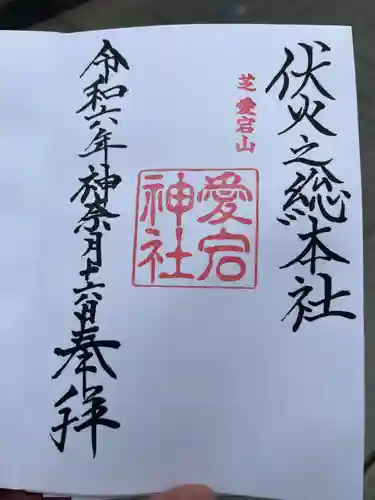 伏火之総本社
芝 愛宕山
愛宕
神社
令和六年神奈月十六日奉拝